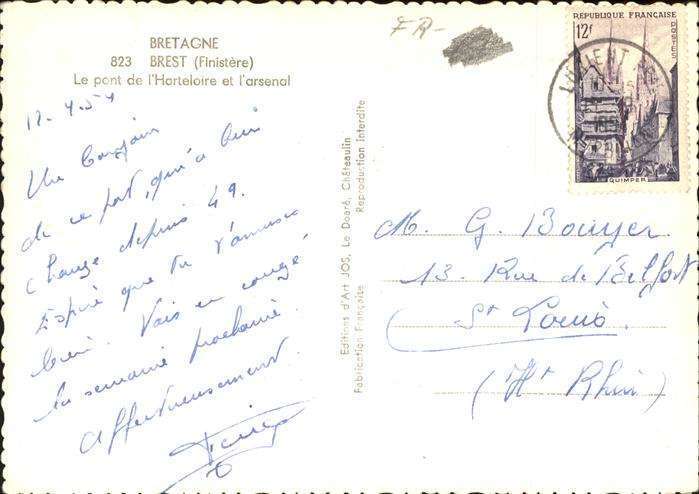 BRETAGNE
823 BREST (Finistère)
Le pont de l'Harteloire et l'arsenal
FR-
REPUBLIQUE FRANÇAISE
12f
POSTES
LORIENT
QUIMPER
Un bonjour
de ce port, qui a bien
changé depuis 49.
Espère que tu t'amuses
bien. Vais en congé
la semaine prochaine.
Affectueusement.
Editions d'Art JOS, Le Doaré, Châteaulin
Reproduction Interdite
Fabrication Française
M. G. Bouyer
13. Rue de Belfort
St Louis.
(Ht Rhin)